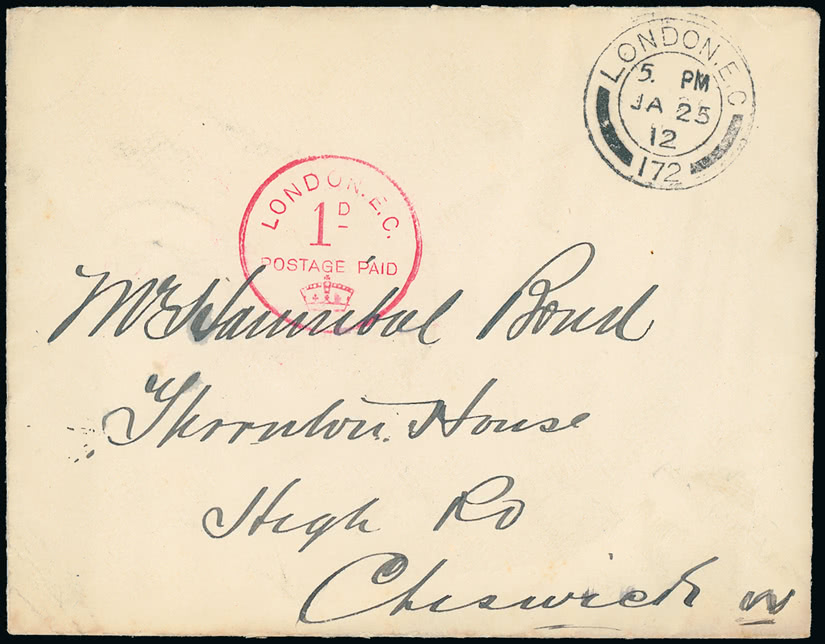 LONDON. E.C
5. PM
JA 25
12
172
LONDON. E.C.
1D
POSTAGE PAID
Mr Hannibal Bond
Thornton House
High Rd
Chiswick W